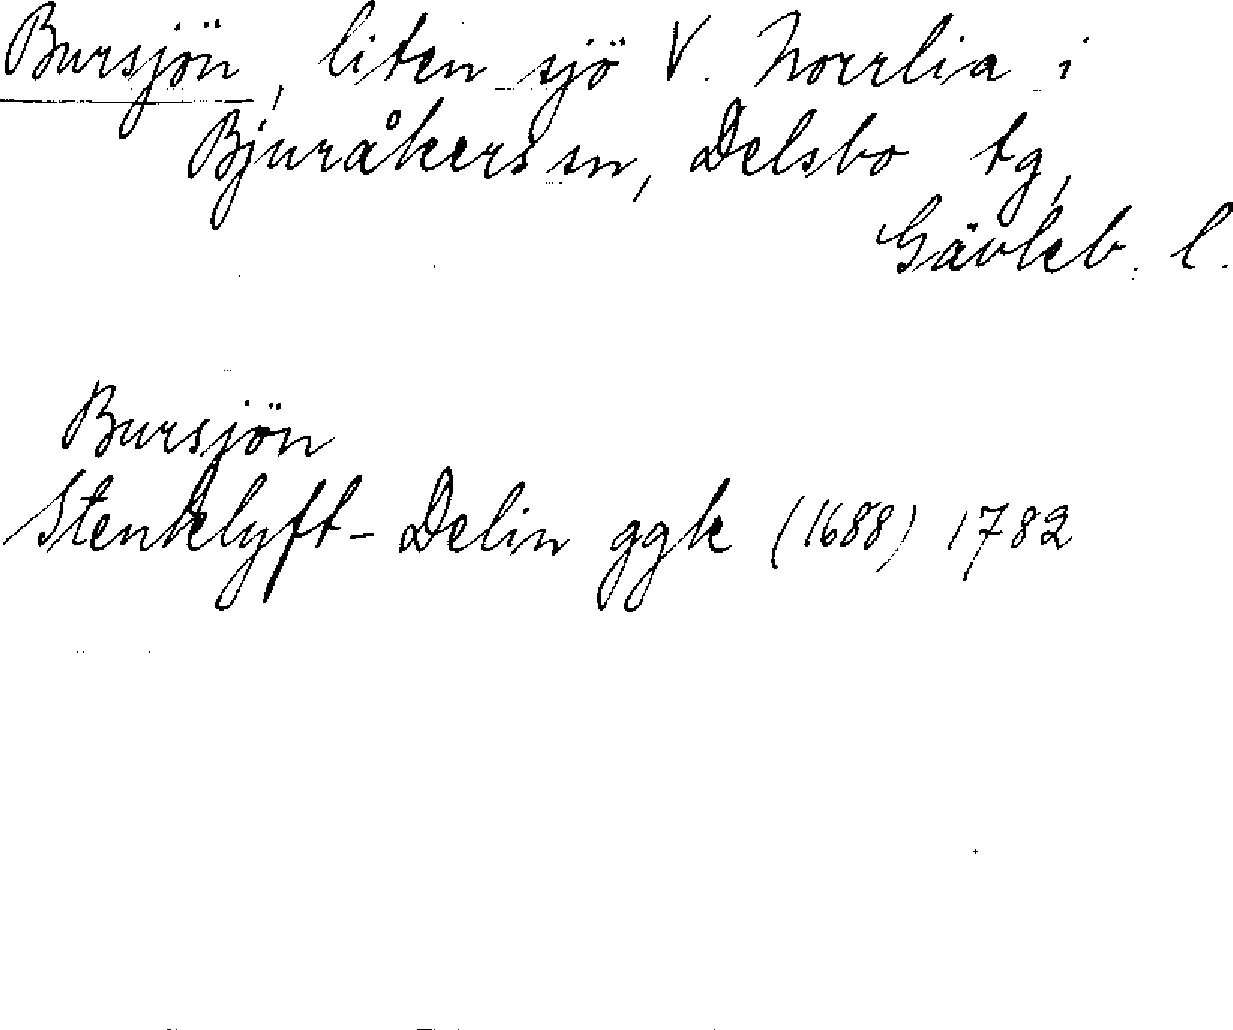 Bursjön, liten sjö V. Norrlia i
Bjuråkers sn, Delsbo tg,
Gävleb. l.
Bursjön
Stenklyft-Delin ggk (1688) 1782